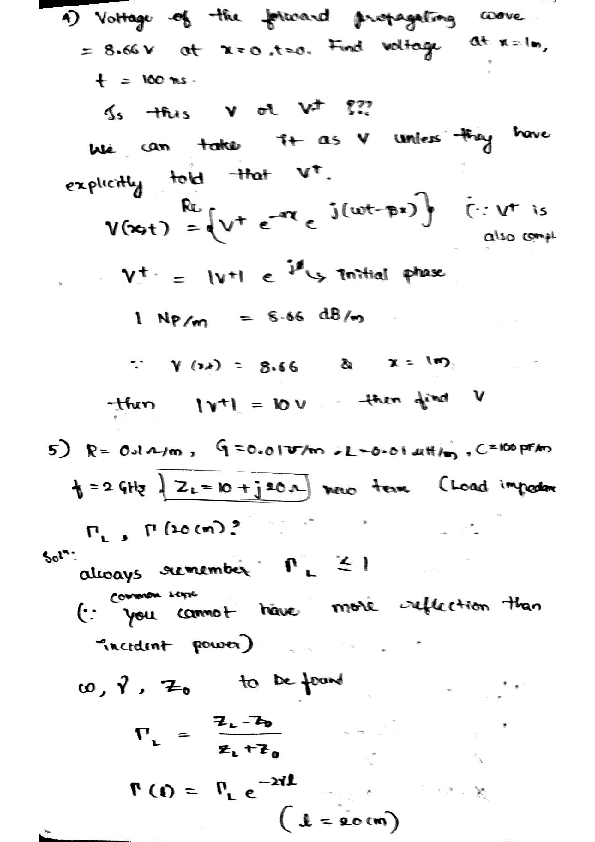 4) Voltage of the forward propagating wave
= 8.66 V at x=0, t=0. Find voltage at x=1m,
t = 100 ns.
Is this V or V+ ???
We can take it as V unless they have
explicitly told that V+.
V(x,t) = Re{V+ e^-αx e^j(ωt-βx)} (∵ V+ is
also compl
V+ = |V+| e^jφ ↳ initial phase
1 NP/m = 8.66 dB/m
∵ V(x,t) = 8.66 & x = 1m
then |V+| = 10 V then find V
5) R = 0.1 Ω/m, G = 0.01 ℧/m, L = 0.01 μH/m, C = 100 PF/m
f = 2 GHz, Z_L = 10 + j20 Ω new term (Load impedance
Γ_L, Γ(20cm)?
Solⁿ:
always remember Γ_L ≤ 1
common sense
(∵ you cannot have more reflection than
incident power)
ω, γ, Z₀ to be found
Γ_L = Z_L - Z₀ / Z_L + Z₀
Γ(l) = Γ_L e^-2γl
(l = 20cm)